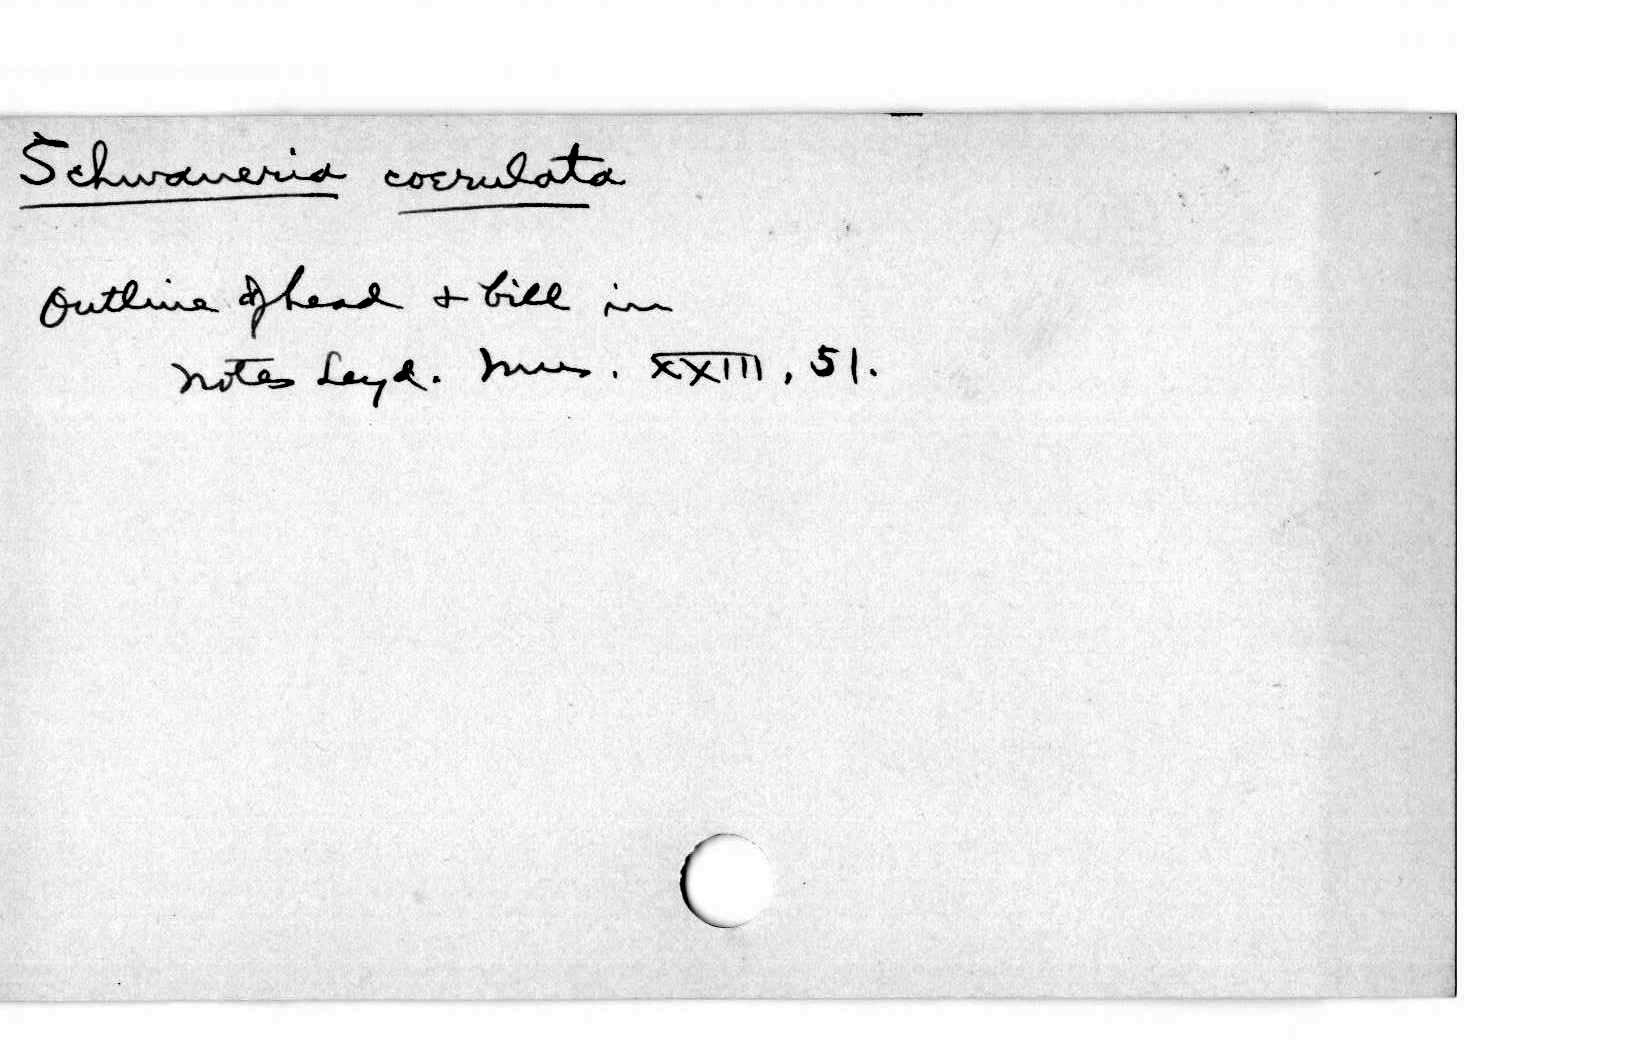 Schwaneria coerulata
Outline of head & bill in
Notes Leyd. Mus. XXIII, 51.